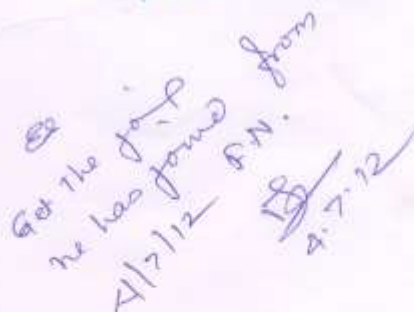 Get the
he has joined from
4/7/12 F.N.
4.7.12